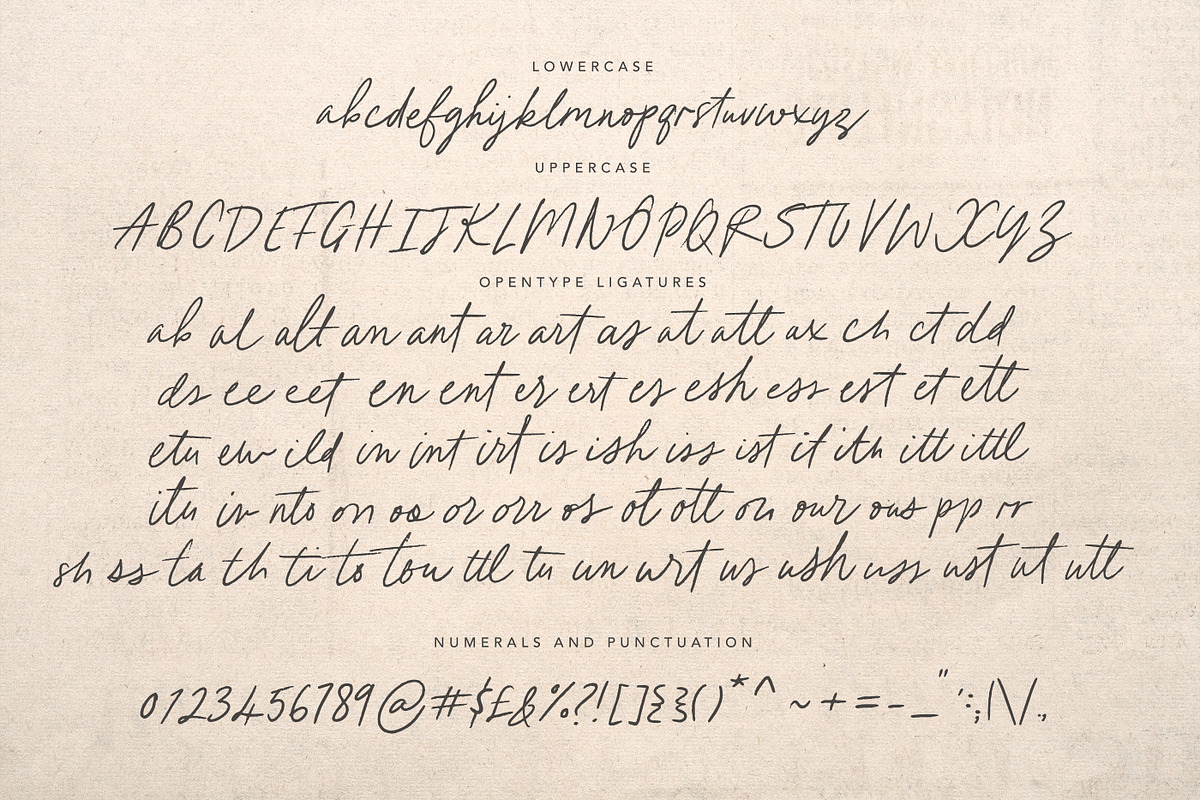 LOWERCASE
abcdefghijklmnopqrstuvwxyz
UPPERCASE
ABCDEFGHIJKLMNOPQRSTUVWXYZ
OPENTYPE LIGATURES
ab al alt an ant ar art as at att ax ch ct dd
ds ee eet en ent er ert es esh ess est et ett
etu ew ild in int irt is ish iss ist it ith itt ittl
itu iv nto on oo or orr os ot ott ou our ous pp rr
sh ss ta th ti to tou ttl tu un urt us ush uss ust ut utt
NUMERALS AND PUNCTUATION
0123456789@#$£&%?![]{}()*^~+=-_"':;|\/.,